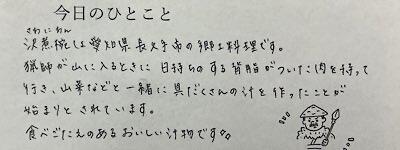 今日のひとこと
さわにわん
沢煮椀は愛知県長久手市の郷土料理です。
猟師が山に入るときに日持ちのする背脂がついた肉を持って
行き、山菜などと一緒に具だくさんの汁を作ったことが
始まりとされています。
食べごたえのあるおいしい汁物です。